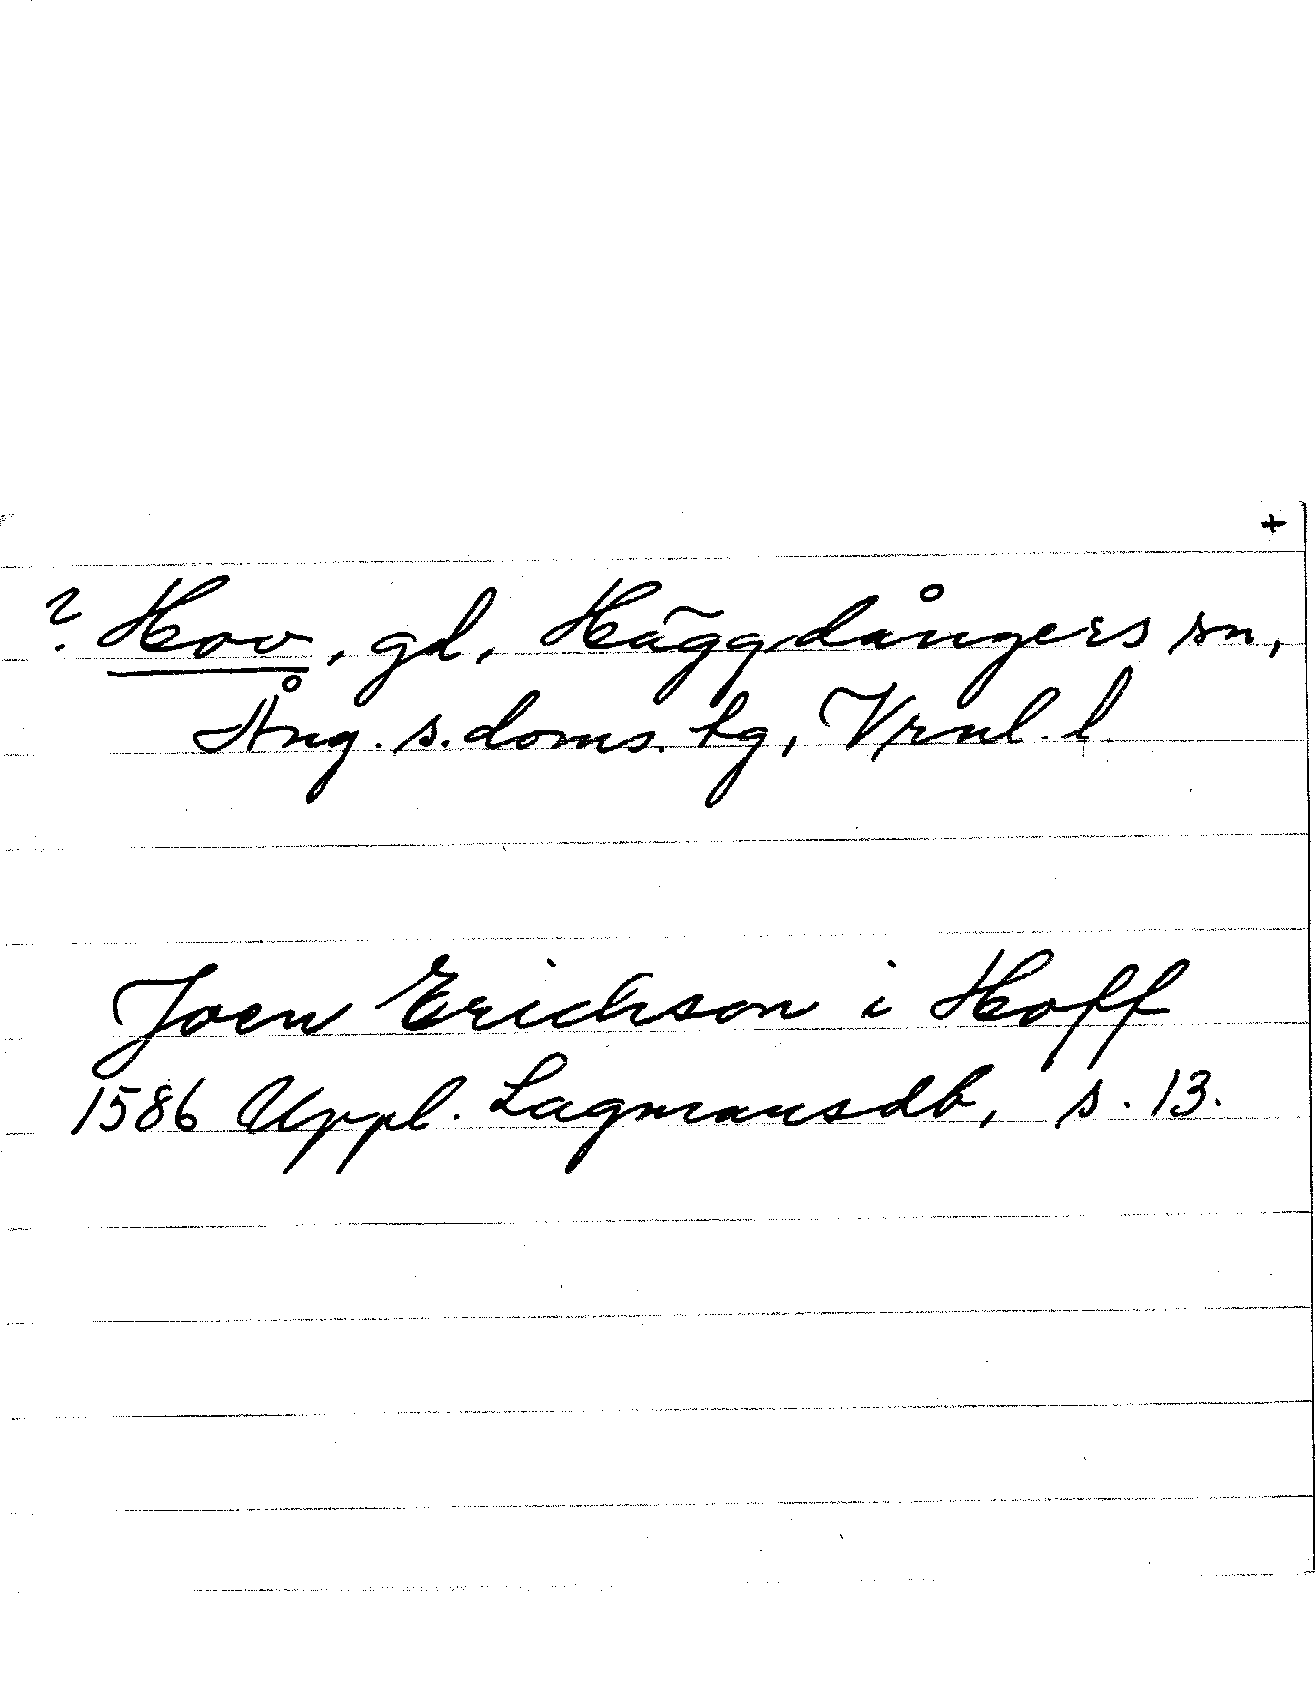 +
? Hov, gd, Häggdångers sn,
Ång. s. doms. tg, Vrnl. l.
Joen Erichson i Hoff
1586 Uppl. Lagmansdb, s. 13.